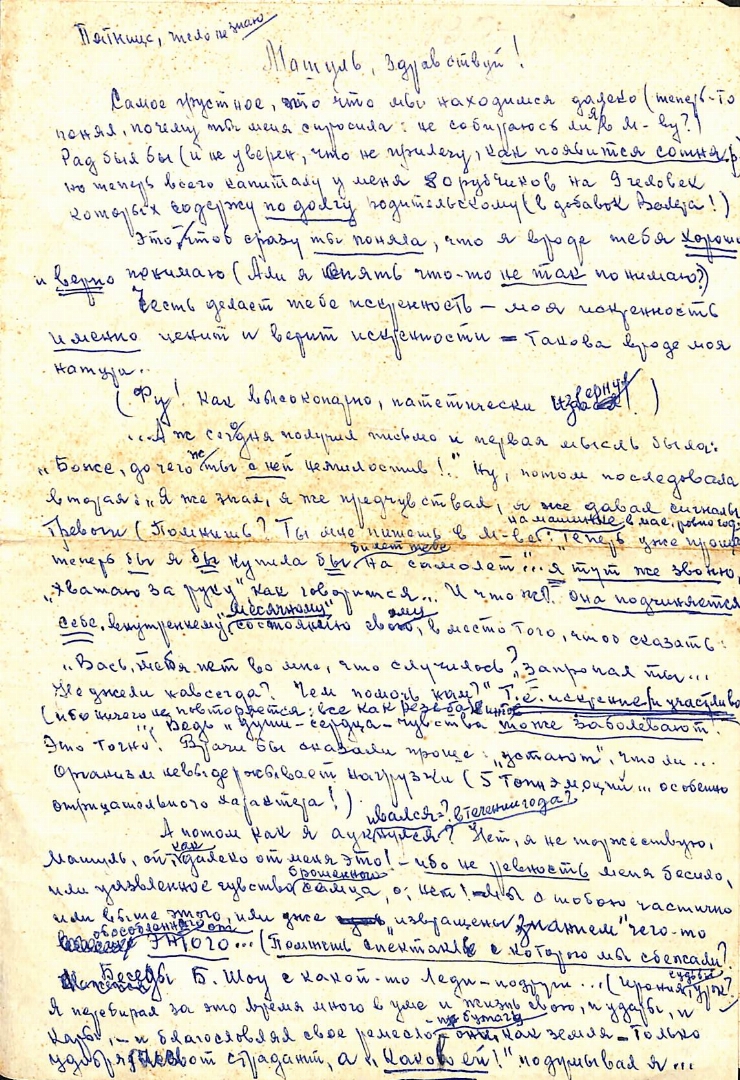 Пятница, число не знаю
Машуль, здравствуй!
Самое грустное, это что мы находимся далеко (теперь-то
понял, почему ты меня спросила: не собираюсь ли я в М-ву?)
Рад был бы (и не уверен, что не прилечу, как появится сотня р
но теперь всего капиталу у меня 8 рубчиков на 9 человек
которых содержу по долгу родительскому (в добавок Валера!)
Это, чтоб сразу ты поняла, что я вроде тебя хорошо
и верно понимаю (Али я опять что-то не так понимаю?)
Честь делает тебе искренность – моя искренность
именно ценит и верит искренности – такова вроде моя
натура..
(Фу! Как высокопарно, патетически извернул! )
...Аж сегодня получил письмо и первая мысль была:
„Боже, до чего же ты с ней немилостив!.." Ну, потом последовала
вторая: „Я же знал, я же предчувствал, я же давал сигналы
тревоги (Помнишь? Ты мне пишешь в М-ве: на машинке в мае, ровно год „Теперь уже проще
теперь бы я бы купила бы билет тебе на самолет"... я тут же звоню,
„хватаю за руку" как говорится... И что ж? она подчиняется
себе, внутреннему „месячному" состоянию своему, вместо того, чтоб сказать:
„Вась, тебя нет во мне, что случилось? Запропал ты...
Неужели навсегда? Чем помочь нам?" Т.е. искренне и участливо
(ибо ничего не повторяется: все как резьба
Ведь „души-сердца-чувства тоже заболевают".
Это точно! Врачи бы сказали проще: „устают", что ли...
Организм невыдерживает нагрузки (5 тонн эмоций... особенно
отрицательного характера!)
А потом как я аукнулся? ивался? в течении года? Нет, я не торжествую,
Машуль, ой, как далеко от меня это! – ибо не ревность меня бесило,
или уязвленное чувство брошенного самца, о, нет! – мы с тобою частично
или выше этого, или уже „извращены знанием" чего-то
обособленного от этого... (Помнишь спектакль с которого мы сбежали?
Беседы Б. Шоу с какой-то Леди-подруги... (ирония судьбы, уж?
Я перебирал за это время много в уме и жизнь свою, и удары, и
кары, – и благословлял свое ремесло – они, – бумага как земля – только
удобряют страдания, а „каково ей!" подумывал я...